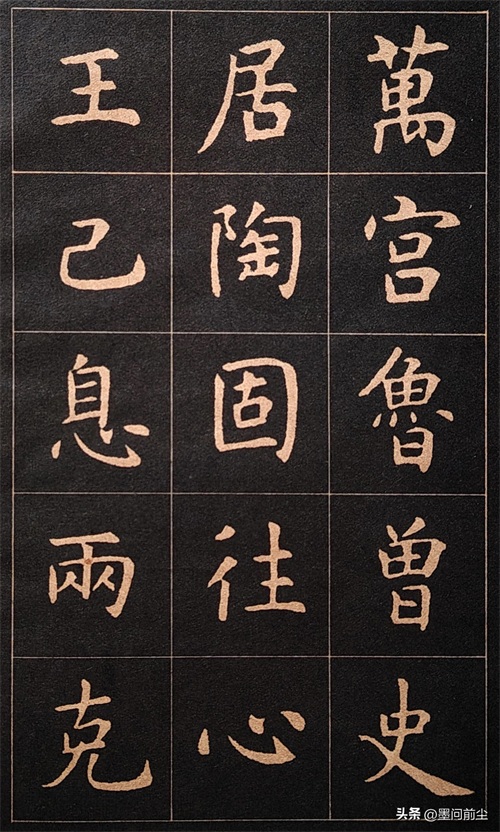 萬宮魯曾史
居陶固往心
王己息兩克
头条@墨问前尘